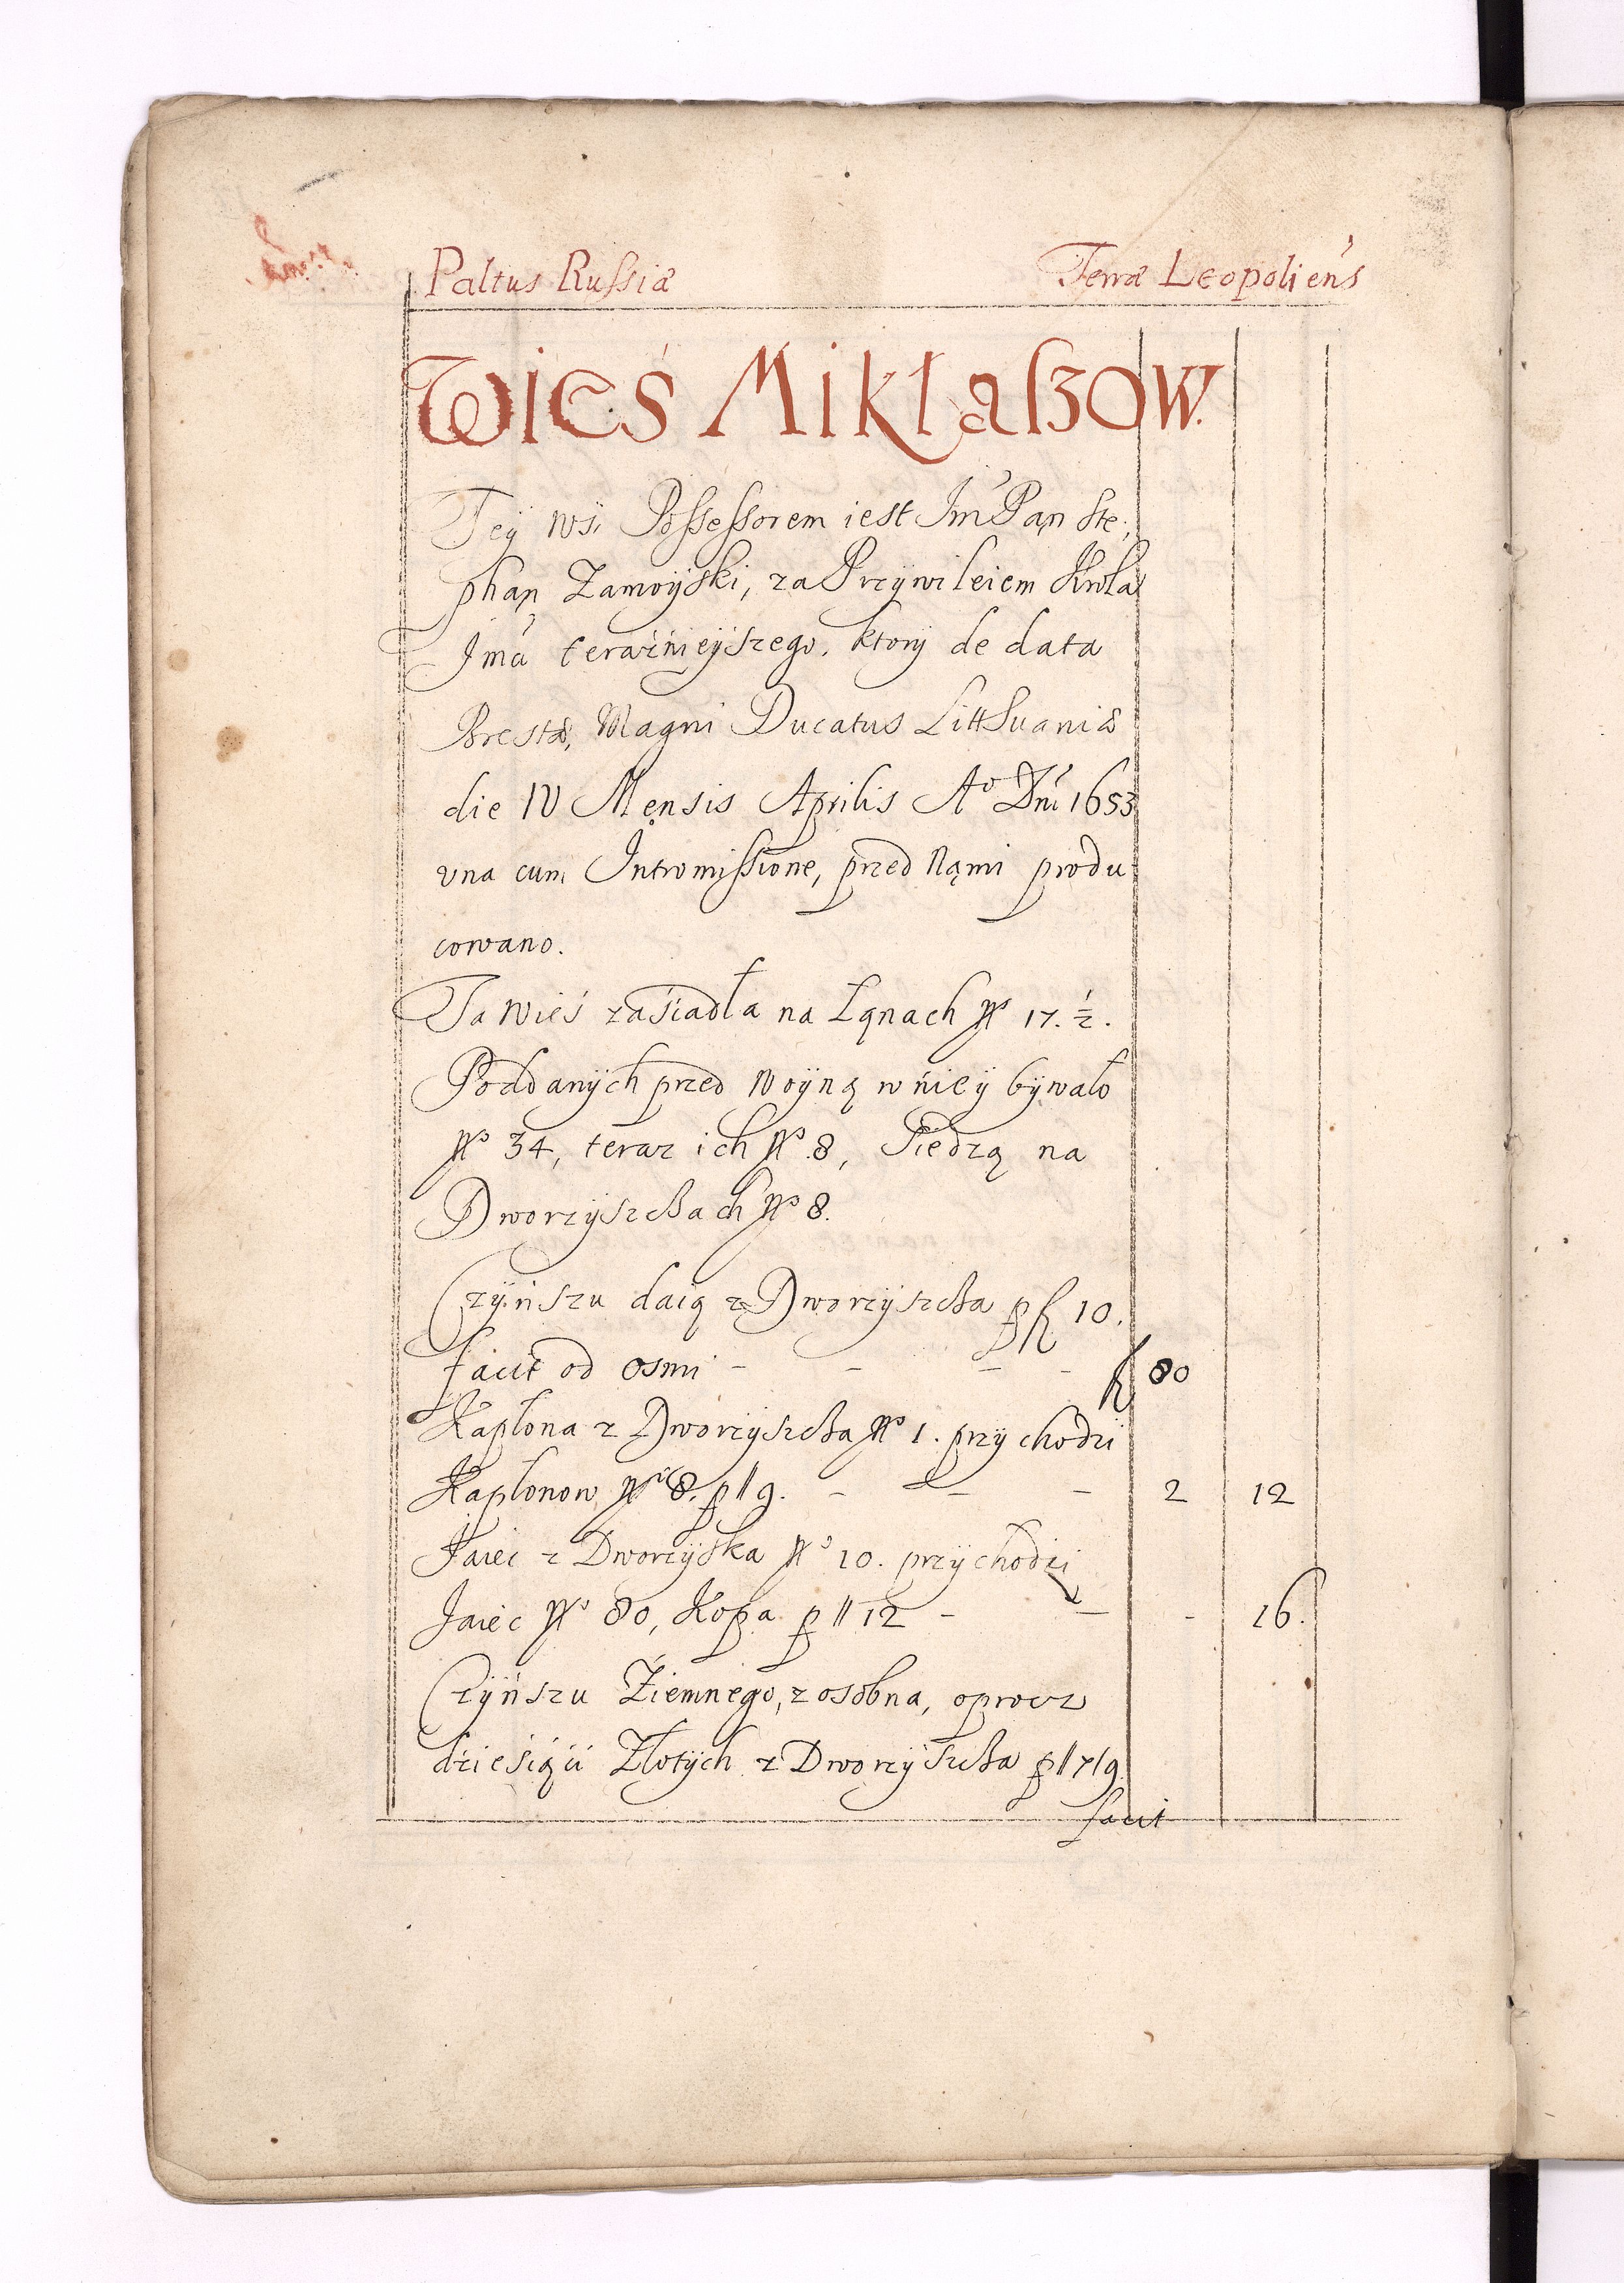 Paltus Russiæ Terræ Leopolień's
Wieś Miklaszow.
Teÿ wsi Possessorem iest Jm̃ Pan Ste:
phan Zamoÿski, za Przÿwileiem Krola
Jmci teraźnieÿszego, ktorÿ de data
Brestæ, Magni Ducatus Litthuaniæ
die IV Mensis Aprilis Aº Dnĩ 1653
vna cum Intromissione, przed Nami produ
cowano.
Ta Wieś zaśiadła na Łąnach Nº 17. ½.
Poddanÿch przed Woÿną w nieÿ bÿwało
Nº 34, teraz ich Nº 8, Siedzą na
Dworzÿszchach Nº 8.
Czÿnszu daią z Dworzÿszcha p fl 10.
facit od osmi - - - - fl 80
Kapłona z Dworzÿszcha Nº 1. przÿchodzi
Kapłonow Nº 8. p ll 9. - - - 2 12
Jaiec z Dworzÿska Nº 10. przÿchodzi
Jaiec Nº 80, Kopa p ll 12 - - - 16.
Czÿnszu Źiemnego, z osobna, oprocz
dźieśiąći Złotÿch z Dworzÿszcha p ll 7/9
facit